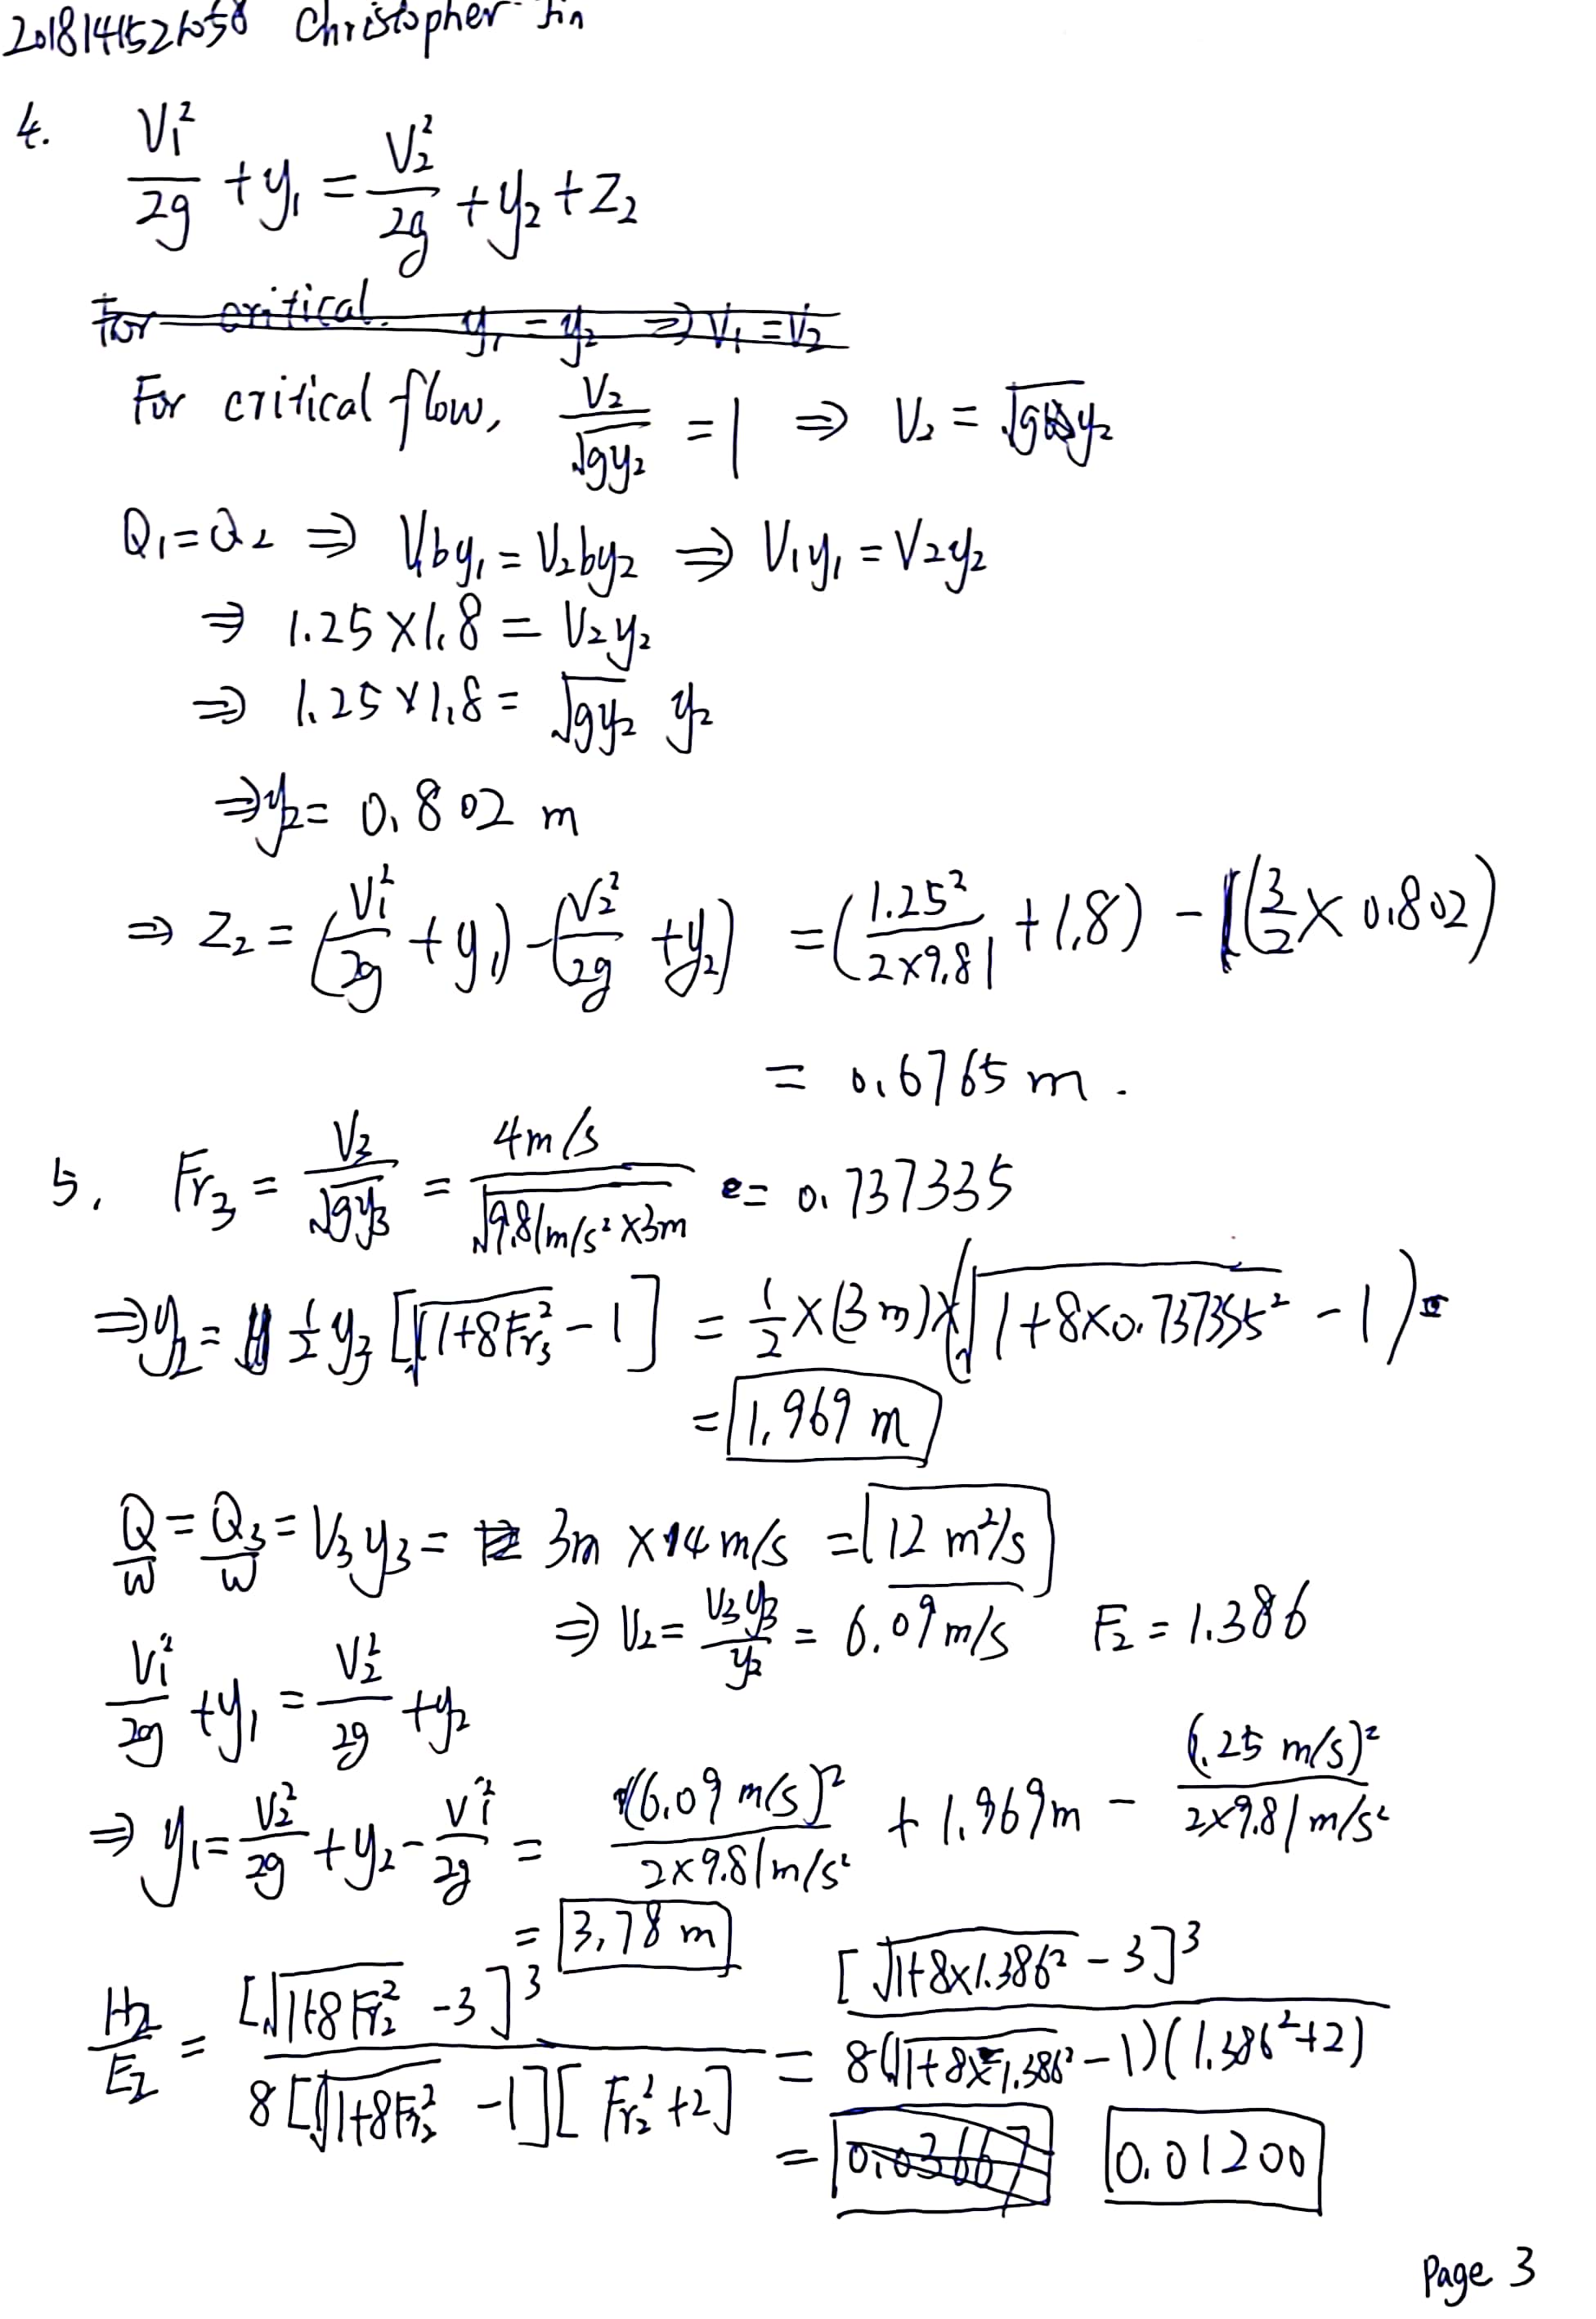 Christopher Jin
4. V₁²/2g + y₁ = V₂²/2g + y₂ + Z₂
For critical. y₁ = y₂ ⇒ V₁ = V₂
For critical flow, V₂/√(gy₂) = 1 ⇒ V₂ = √(gy₂)
Q₁ = Q₂ ⇒ V₁by₁ = V₂by₂ ⇒ V₁y₁ = V₂y₂
⇒ 1.25 × 1.8 = V₂y₂
⇒ 1.25 × 1.8 = √(gy₂) y₂
⇒ y₂ = 0.802 m
⇒ Z₂ = (V₁²/2g + y₁) - (V₂²/2g + y₂) = (1.25²/(2×9.81) + 1.8) - (3/2 × 0.802)
= 0.6765 m.
5. Fr₃ = V₃/√(gy₃) = 4m/s/√(9.81m/s² × 3m) = 0.737335
⇒ y₂ = ½ y₃ [√(1+8Fr₃²) - 1] = ½ × (3m) × (√(1+8×0.737355²) - 1) =
= 1.969 m
Q/W = Q₃/W = V₃y₃ = 3m × 4 m/s = 12 m²/s
⇒ V₂ = V₃y₃/y₂ = 6.09 m/s F₂ = 1.386
V₁²/2g + y₁ = V₂²/2g + y₂
⇒ y₁ = V₂²/2g + y₂ - V₁²/2g = (6.09 m/s)²/(2×9.81m/s²) + 1.969m - (1.25 m/s)²/(2×9.81m/s²)
= 3.78 m
H₂/E₂ = [√(1+8Fr₂²) - 3]³/(8[√(1+8Fr₂²) - 1][Fr₂²+2]) = [√(1+8×1.386²) - 3]³/(8(√(1+8×1.386²) - 1)(1.386²+2))
= 0.01200
Page 3